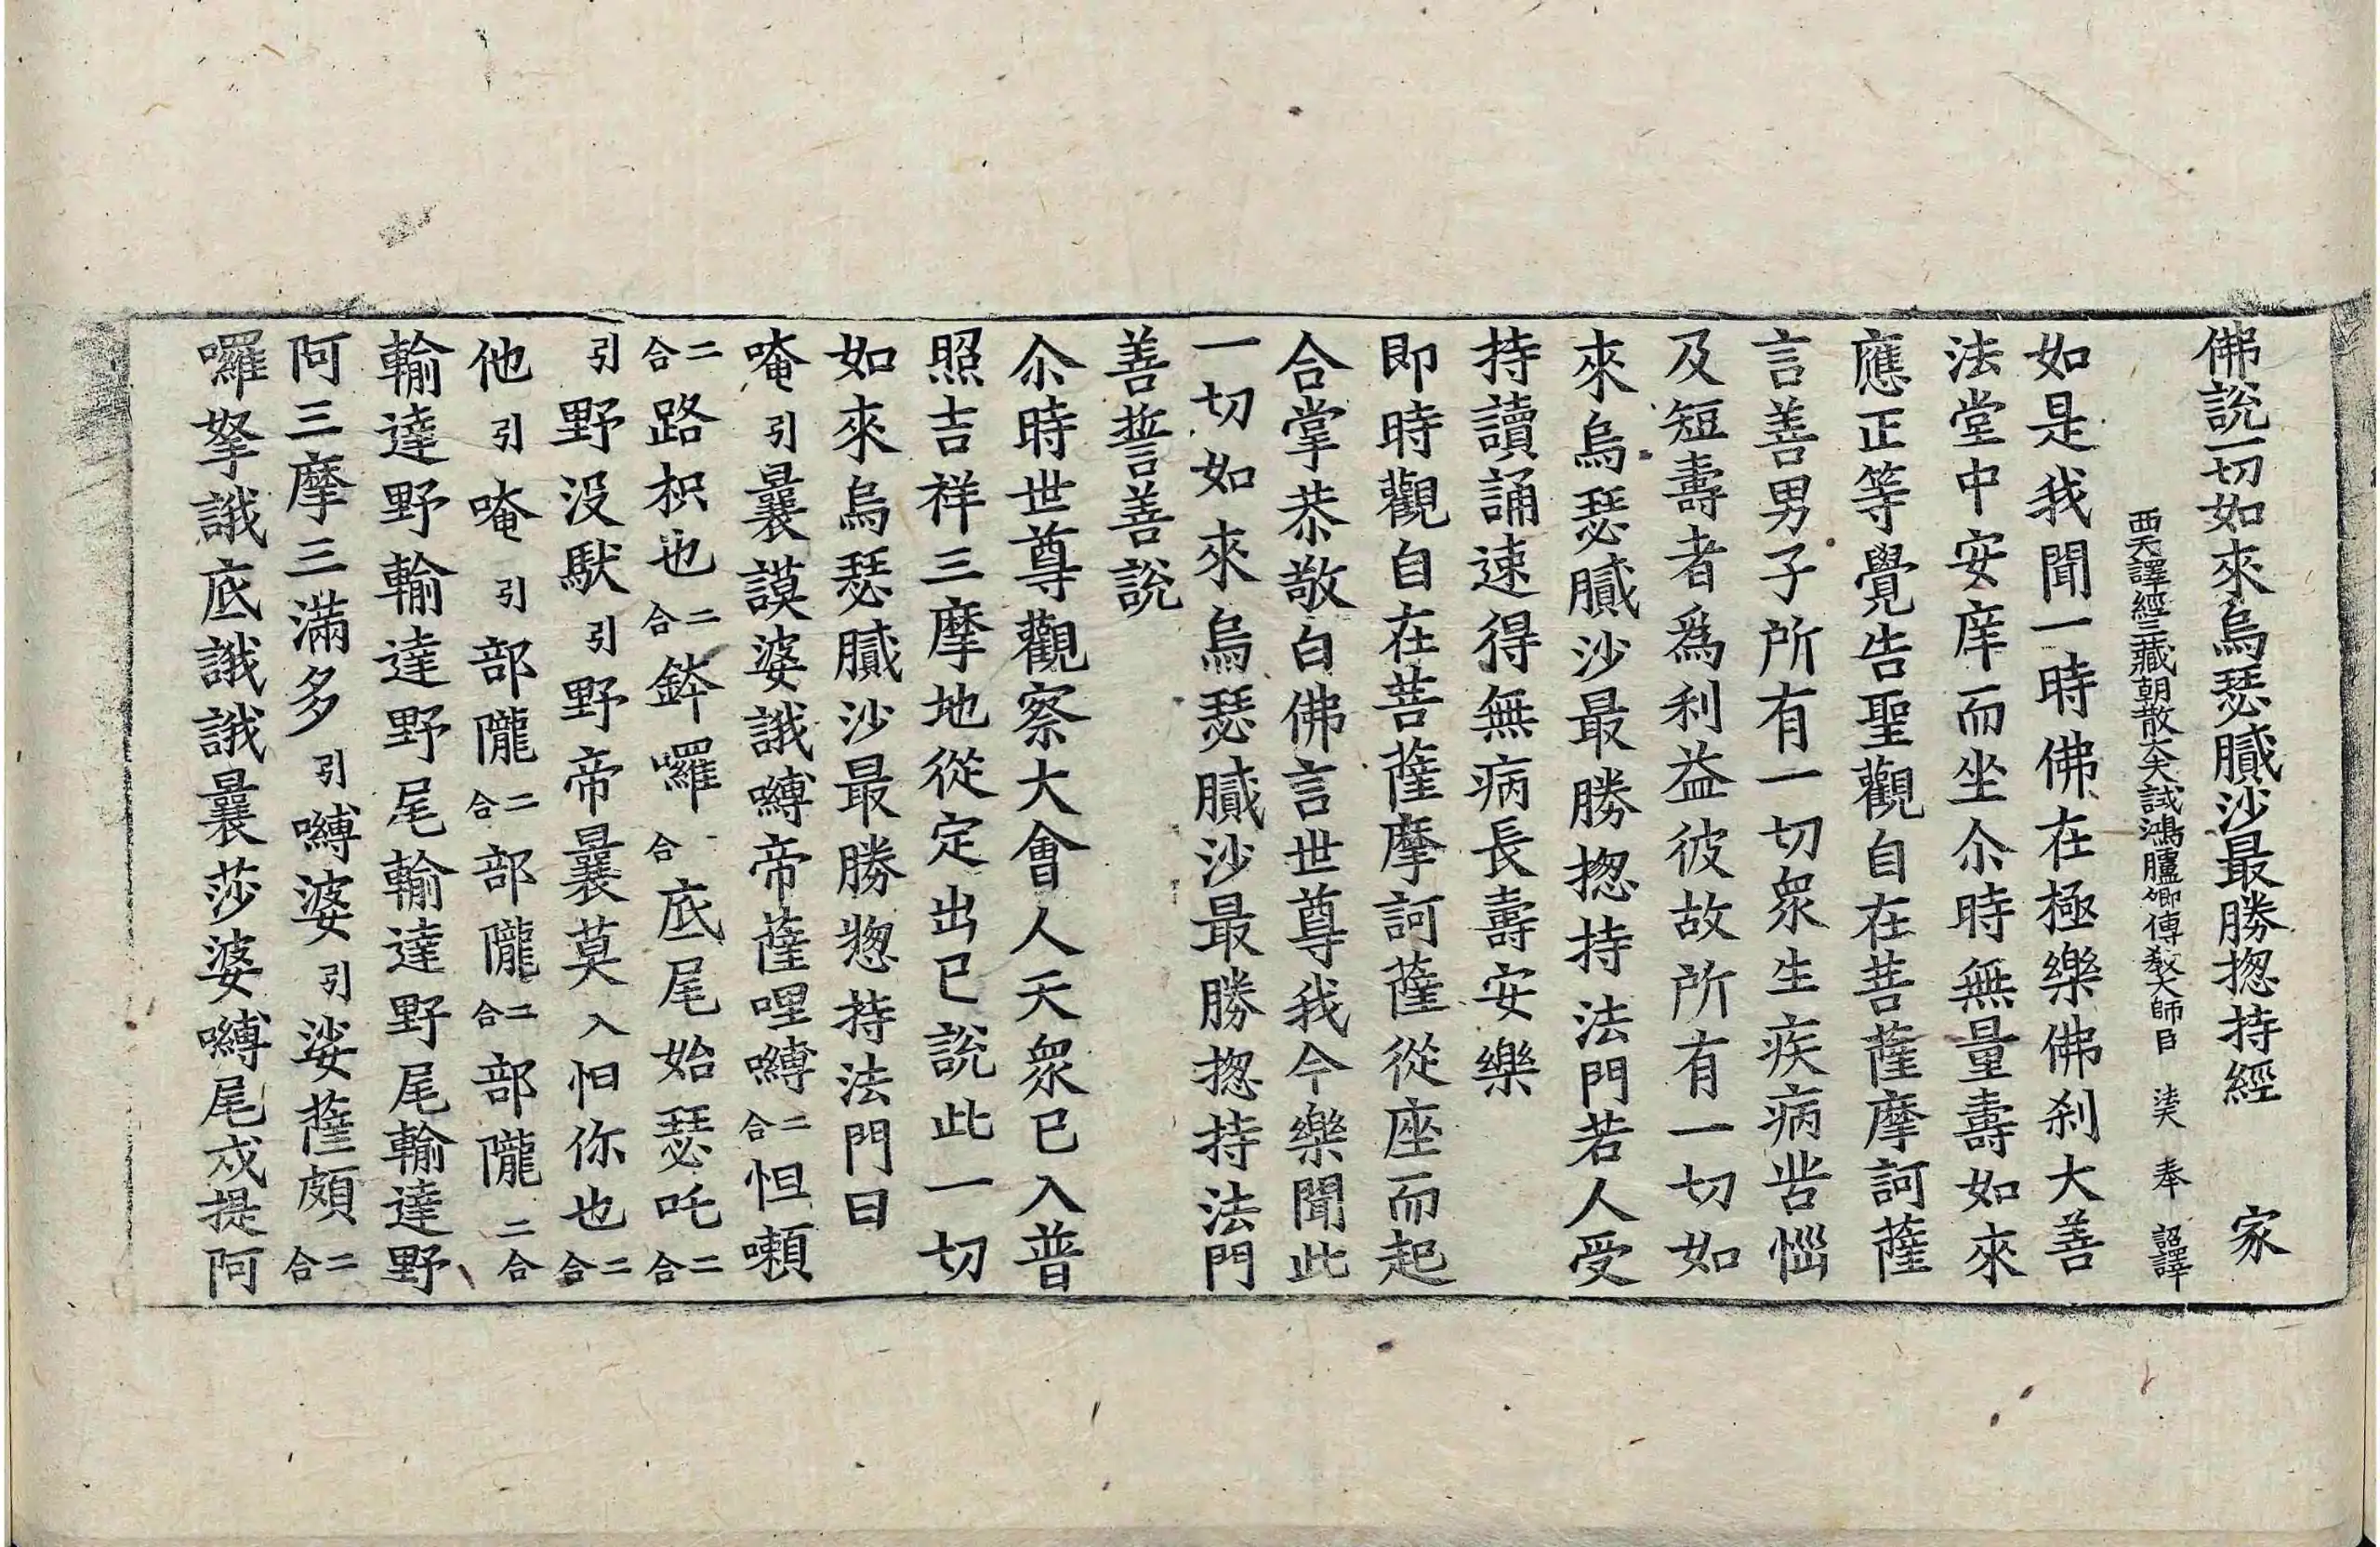 佛說一切如來烏瑟膩沙最勝揔持經 家
西天譯經三藏朝散大夫試鴻臚卿傳教大師臣 法天 奉 詔譯
如是我聞一時佛在極樂佛刹大善
法堂中安庠而坐尒時無量壽如來
應正等覺告聖觀自在菩薩摩訶薩
言善男子所有一切衆生疾病苦惱
及短壽者爲利益彼故所有一切如
來烏瑟膩沙最勝揔持法門若人受
持讀誦速得無病長壽安樂
即時觀自在菩薩摩訶薩從座而起
合掌恭敬白佛言世尊我今樂聞此
一切如來烏瑟膩沙最勝揔持法門
善誓善說
尒時世尊觀察大會人天衆已入普
照吉祥三摩地從定出已說此一切
如來烏瑟膩沙最勝揔持法門曰
唵引曩謨婆誐嚩帝薩哩嚩二合怛嚩
二合路枳也二合鉢囉合底尾始瑟吒二合
引野没馱引野帝曩莫入怛你也二合
他引唵引部隴二合部隴二合部隴二合
輸達野輸達野尾輸達野尾輸達野
阿三摩三滿多引嚩婆引娑薩頗二合
囉拏誐底誐誐曩莎婆嚩尾戍提阿